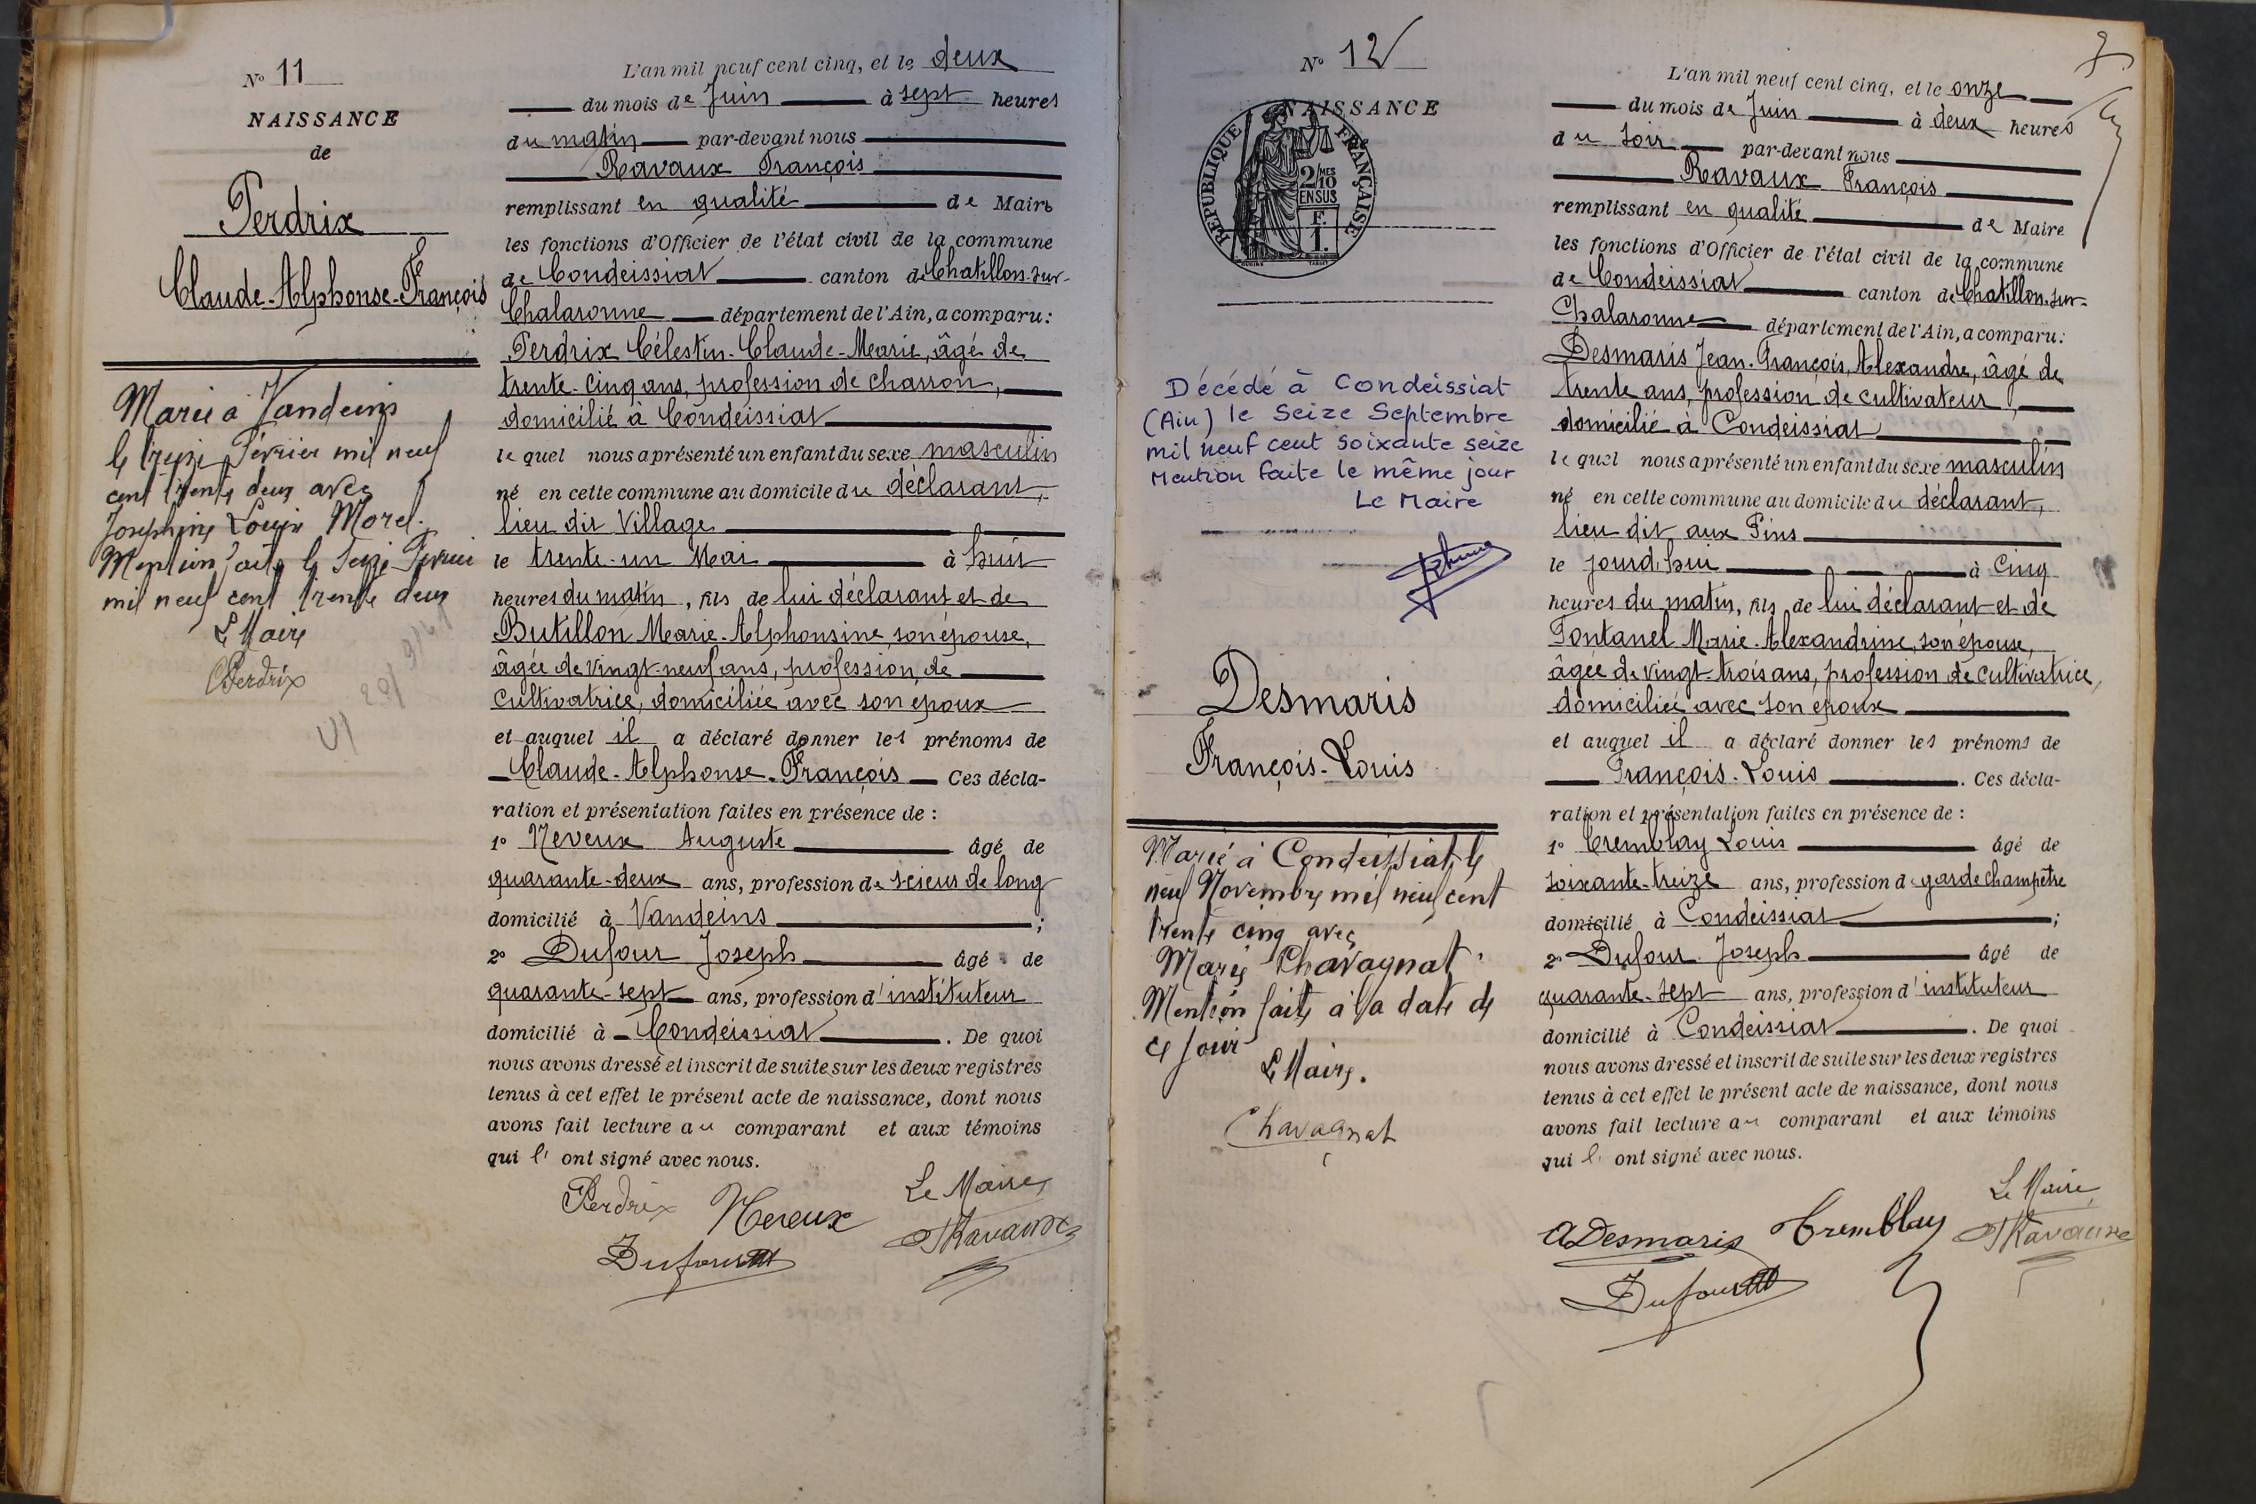 N° 11
NAISSANCE
de
Perdrix
Claude-Alphonse-François
Marié à Vandeins
le treize Février mil neuf
cent trente deux avec
Josephine Louise Morel.
Mention faite le seize Février
mil neuf cent trente deux
Le Maire
Perdrix
L'an mil neuf cent cinq, et le deux
du mois de Juin à sept heures
du matin par-devant nous
Ravaux François
remplissant en qualité de Maire
les fonctions d'Officier de l'état civil de la commune
de Condeissiat canton de Chatillon-sur-
Chalaronne département de l'Ain, a comparu:
Perdrix Célestin-Claude-Marie, âgé de
trente-cinq ans, profession de charron,
domicilié à Condeissiat
lequel nous a présenté un enfant du sexe masculin
né en cette commune au domicile du déclarant,
lieu dit Village
le trente-un Mai à huit
heures du matin, fils de lui déclarant et de
Butillon Marie-Alphonsine, son épouse,
âgée de vingt-neuf ans, profession de
cultivatrice, domiciliée avec son époux
et auquel il a déclaré donner les prénoms de
Claude-Alphonse-François Ces décla-
ration et présentation faites en présence de :
1° Neveux Auguste âgé de
quarante-deux ans, profession de scieur de long
domicilié à Vandeins ;
2° Dufour Joseph âgé de
quarante-sept ans, profession d'instituteur
domicilié à Condeissiat. De quoi
nous avons dressé et inscrit de suite sur les deux registres
tenus à cet effet le présent acte de naissance, dont nous
avons fait lecture au comparant et aux témoins
qui l' ont signé avec nous.
Le Maire,
Perdrix Neveux Ravaux
Dufour
N° 12
NAISSANCE
RÉPUBLIQUE FRANÇAISE
2/10 MES
EN SUS
F.
1.
Décédé à Condeissiat
(Ain) le Seize Septembre
mil neuf cent soixante seize
Mention faite le même jour
Le Maire
Desmaris
François-Louis
Marié à Condeissiat le
neuf Novembre mil neuf cent
trente cinq avec
Marie Chavagnat.
Mention faite à la date de
ce jour
Le Maire.
Chavagnat
L'an mil neuf cent cinq, et le onze
du mois de Juin à deux heures
du soir par-devant nous
Ravaux François
remplissant en qualité de Maire
les fonctions d'Officier de l'état civil de la commune
de Condeissiat canton de Chatillon-sur-
Chalaronne département de l'Ain, a comparu:
Desmaris Jean-François, Alexandre, âgé de
trente ans, profession de cultivateur,
domicilié à Condeissiat
lequel nous a présenté un enfant du sexe masculin
né en cette commune au domicile du déclarant,
lieu dit aux Pins
le jourd'hui à cinq
heures du matin, fils de lui déclarant et de
Fontanel Marie-Alexandrine, son épouse,
âgée de vingt-trois ans, profession de cultivatrice,
domiciliée avec son époux
et auquel il a déclaré donner les prénoms de
François-Louis. Ces décla-
ration et présentation faites en présence de :
1° Tremblay Louis âgé de
soixante-treize ans, profession de garde champêtre
domicilié à Condeissiat ;
2° Dufour Joseph âgé de
quarante-sept ans, profession d'instituteur
domicilié à Condeissiat. De quoi
nous avons dressé et inscrit de suite sur les deux registres
tenus à cet effet le présent acte de naissance, dont nous
avons fait lecture au comparant et aux témoins
qui l' ont signé avec nous.
Le Maire,
ADesmaris Tremblay Ravaux
Dufour